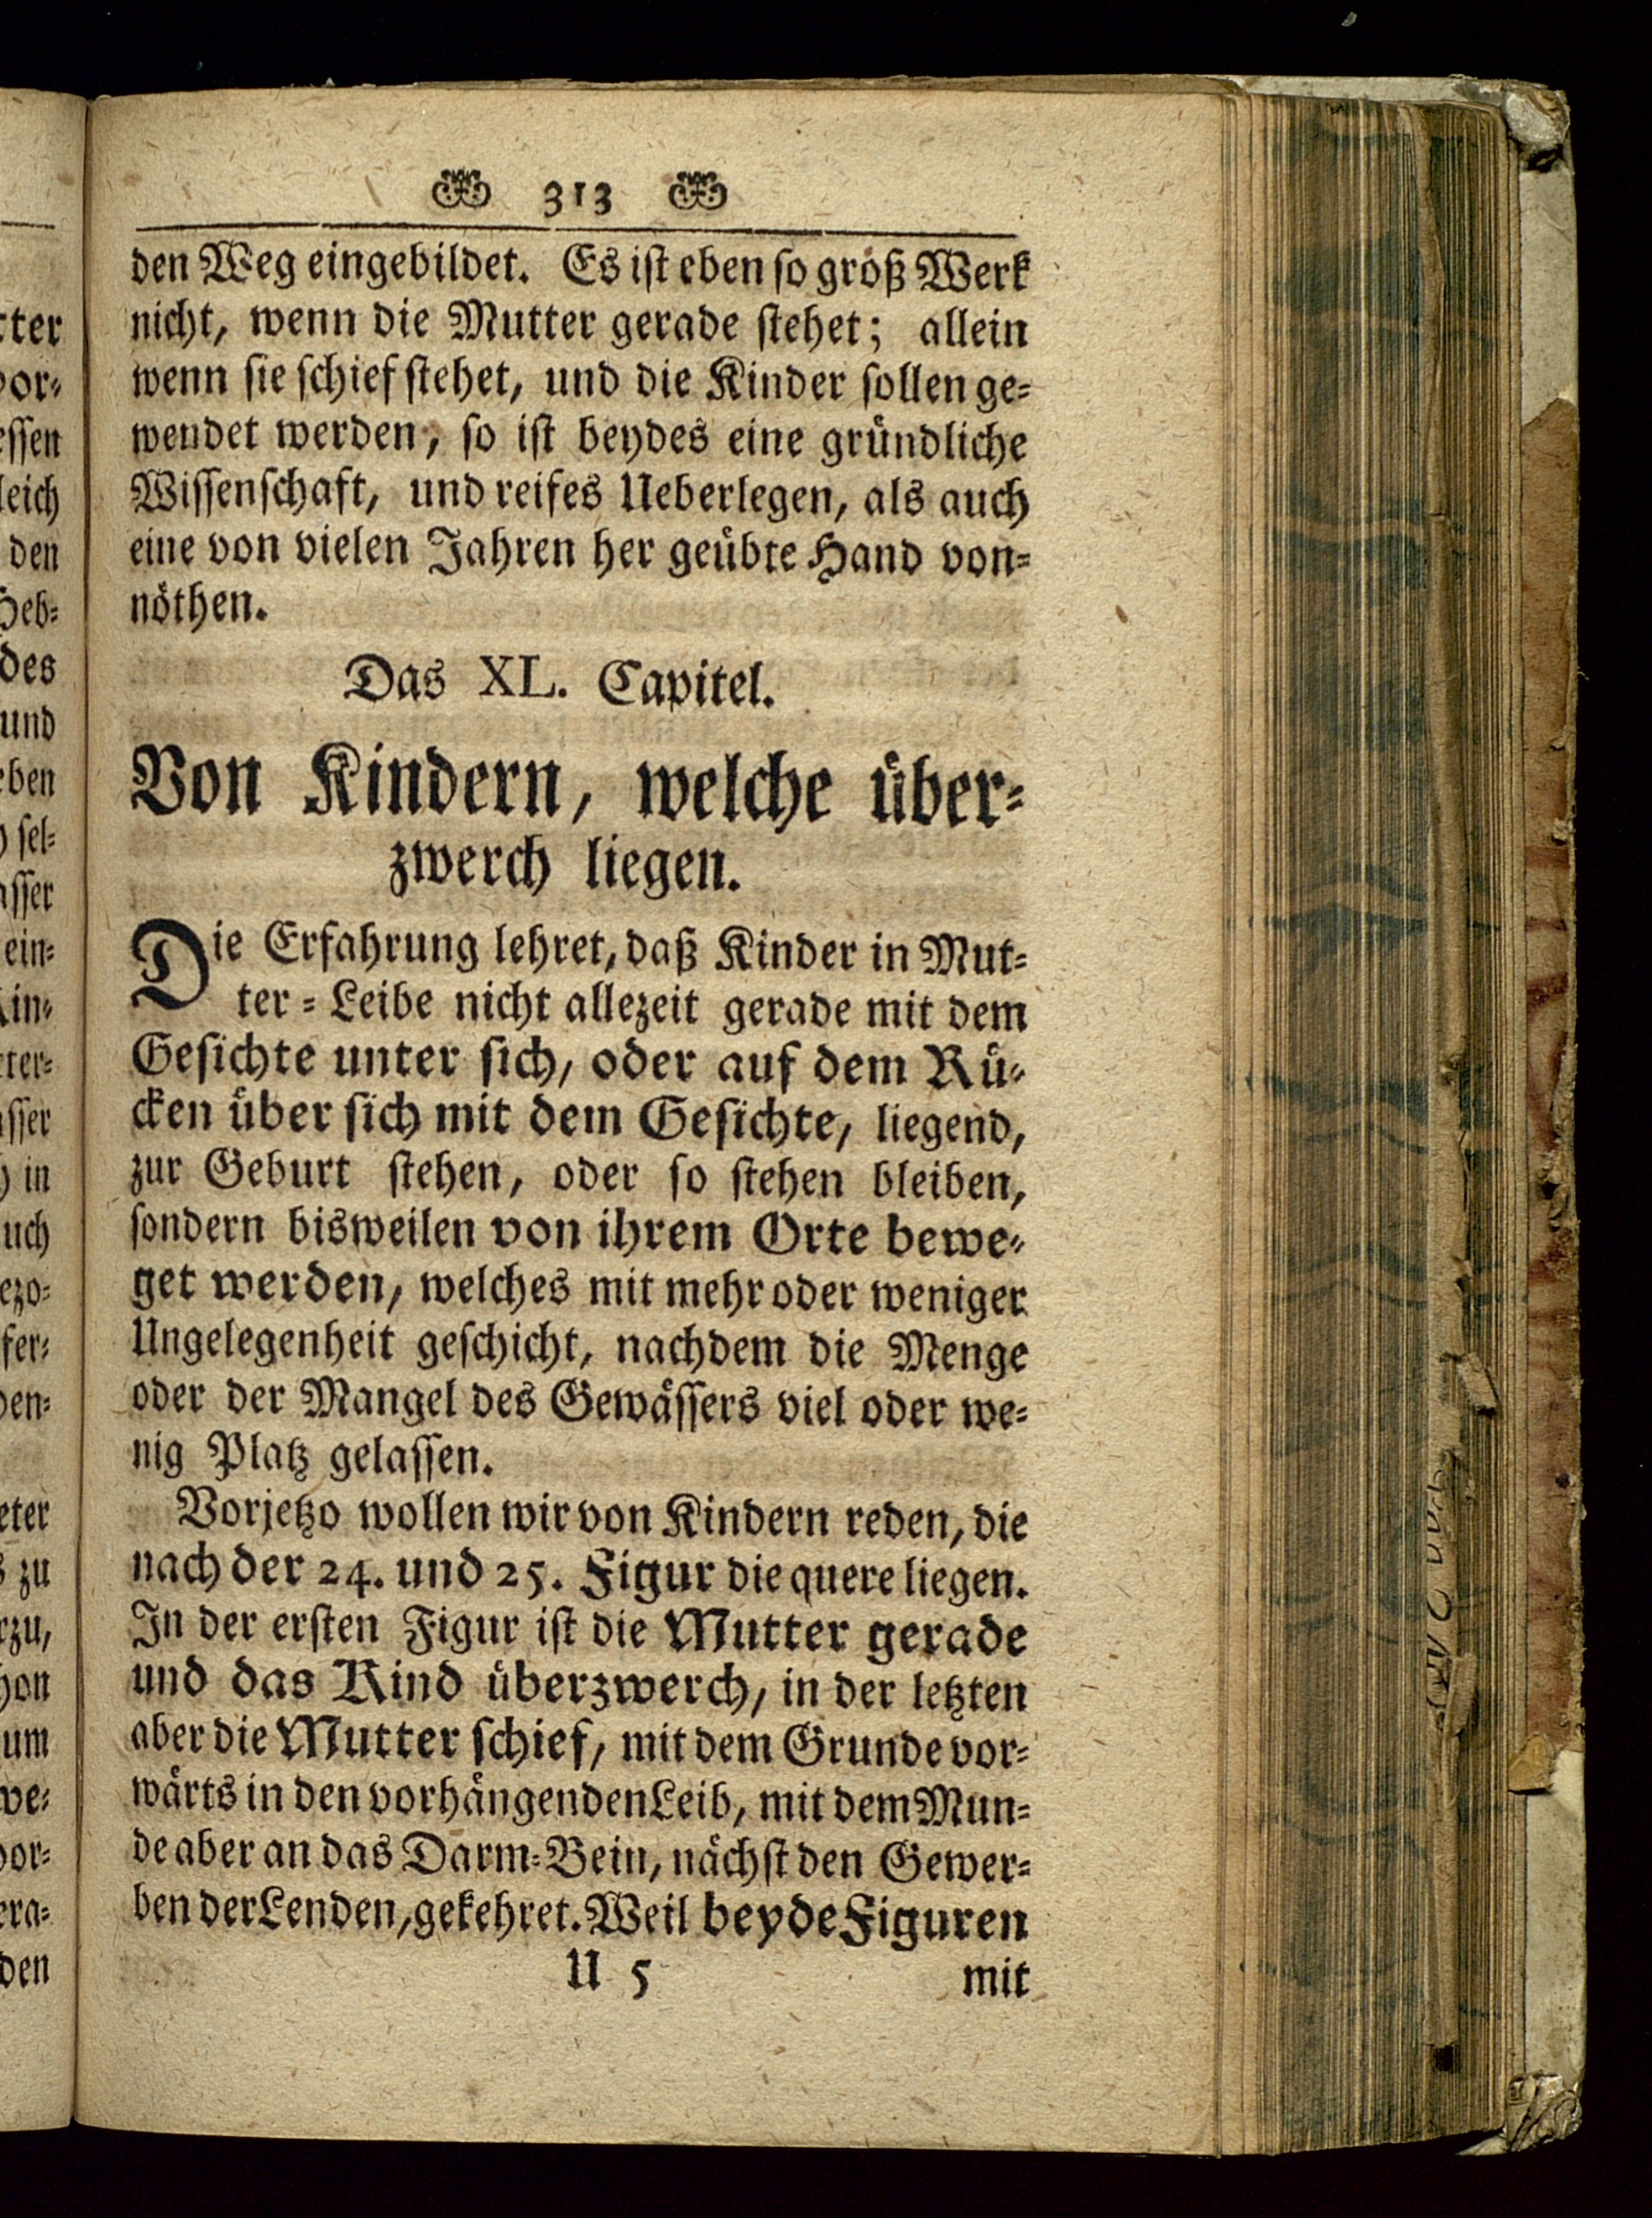 313
den Weg eingebildet. Es ist eben so groß Werk
nicht, wenn die Mutter gerade stehet; allein
wenn sie schief stehet, und die Kinder sollen ge=
wendet werden, so ist beydes eine gründliche
Wissenschaft, und reifes Ueberlegen, als auch
eine von vielen Jahren her geübte Hand von=
nöthen.
Das XL. Capitel.
Von Kindern, welche über=
zwerch liegen.
Die Erfahrung lehret, daß Kinder in Mut=
ter=Leibe nicht allezeit gerade mit dem
Gesichte unter sich, oder auf dem Rü=
cken über sich mit dem Gesichte, liegend,
zur Geburt stehen, oder so stehen bleiben,
sondern bisweilen von ihrem Orte bewe=
get werden, welches mit mehr oder weniger
Ungelegenheit geschicht, nachdem die Menge
oder der Mangel des Gewässers viel oder we=
nig Platz gelassen.
Vorjetzo wollen wir von Kindern reden, die
nach der 24. und 25. Figur die quere liegen.
In der ersten Figur ist die Mutter gerade
und das Kind überzwerch, in der letzten
aber die Mutter schief, mit dem Grunde vor=
wärts in den vorhängenden Leib, mit dem Mun=
de aber an das Darm=Bein, nächst den Gewer=
ben der Lenden, gekehret. Weil beyde Figuren
U 5 mit